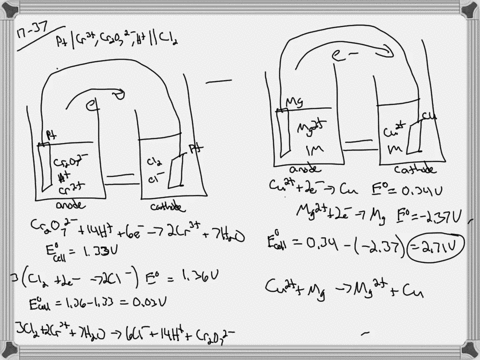 17-37
Pt | Cr³⁺, Cr₂O₇²⁻, H⁺ || Cl₂
e⁻
Pt
Cr₂O₇²⁻
H⁺
Cr³⁺
anode
Pt
Cl₂
Cl⁻
cathode
Cr₂O₇²⁻ + 14H⁺ + 6e⁻ → 2Cr³⁺ + 7H₂O
E°cell = 1.33V
3(Cl₂ + 2e⁻ → 2Cl⁻) E° = 1.36V
E°cell = 1.36 - 1.33 = 0.03V
3Cl₂ + 2Cr³⁺ + 7H₂O → 6Cl⁻ + 14H⁺ + Cr₂O₇²⁻
e⁻
Mg
Mg²⁺
1M
anode
Cu
Cu²⁺
1M
cathode
Cu²⁺ + 2e⁻ → Cu E° = 0.34V
Mg²⁺ + 2e⁻ → Mg E° = -2.37V
E°cell = 0.34 - (-2.37) = 2.71V
Cu²⁺ + Mg → Mg²⁺ + Cu